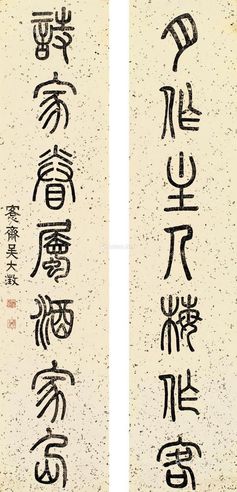 月作主人梅作客
詩家眷屬酒家仙
愙齋吳大澂